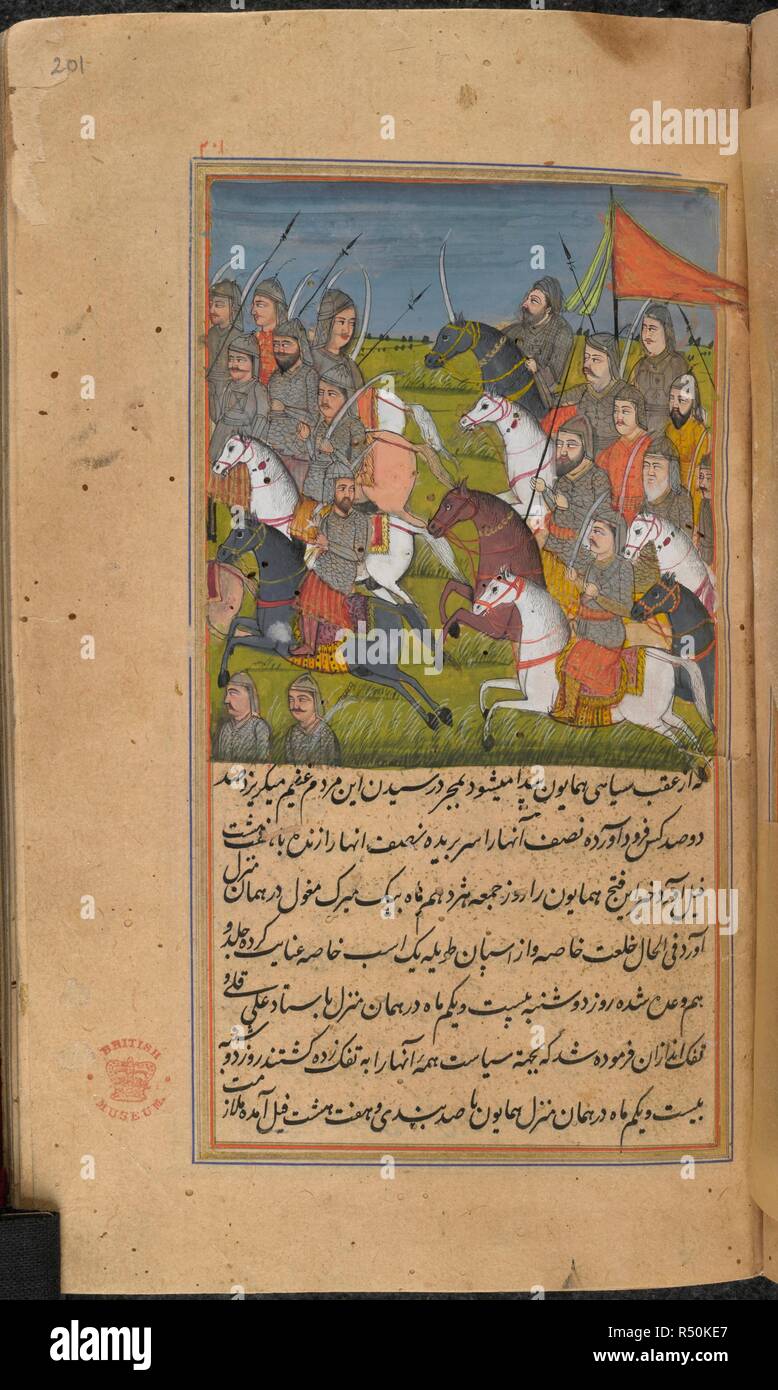 201
۲۰۱
که از عقب سیاهی همایون پیدا میشود بمجرد رسیدن این مردم غنیم میگریزد صد
دو صد کس فرود آورده نصف آنها را سر بریده نصف انها را زنده با هفت هشت
فیل آورد خبر این فتح همایون را روز جمعه هژدهم ماه بیک میرک مغول در همان منزل
آورد فی الحال خلعت خاصه و از اسپان طویله یک اسب خاصه عنایت کرده جلدو
هم وعده شده روز دوشنبه بیست ویکم ماه در همان منزل باستاد علی قلی و
تفک اندازان فرموده شد که بجهة سیاست همه آنها را به تفک زده کشتند روز دوشنبه
بیست ویکم ماه در همان منزل همایون با صد بندی و هفت هشت فیل آمده ملازمت
BRITISH
MUSEUM
alamy
Image ID: R50KE7
www.alamy.com